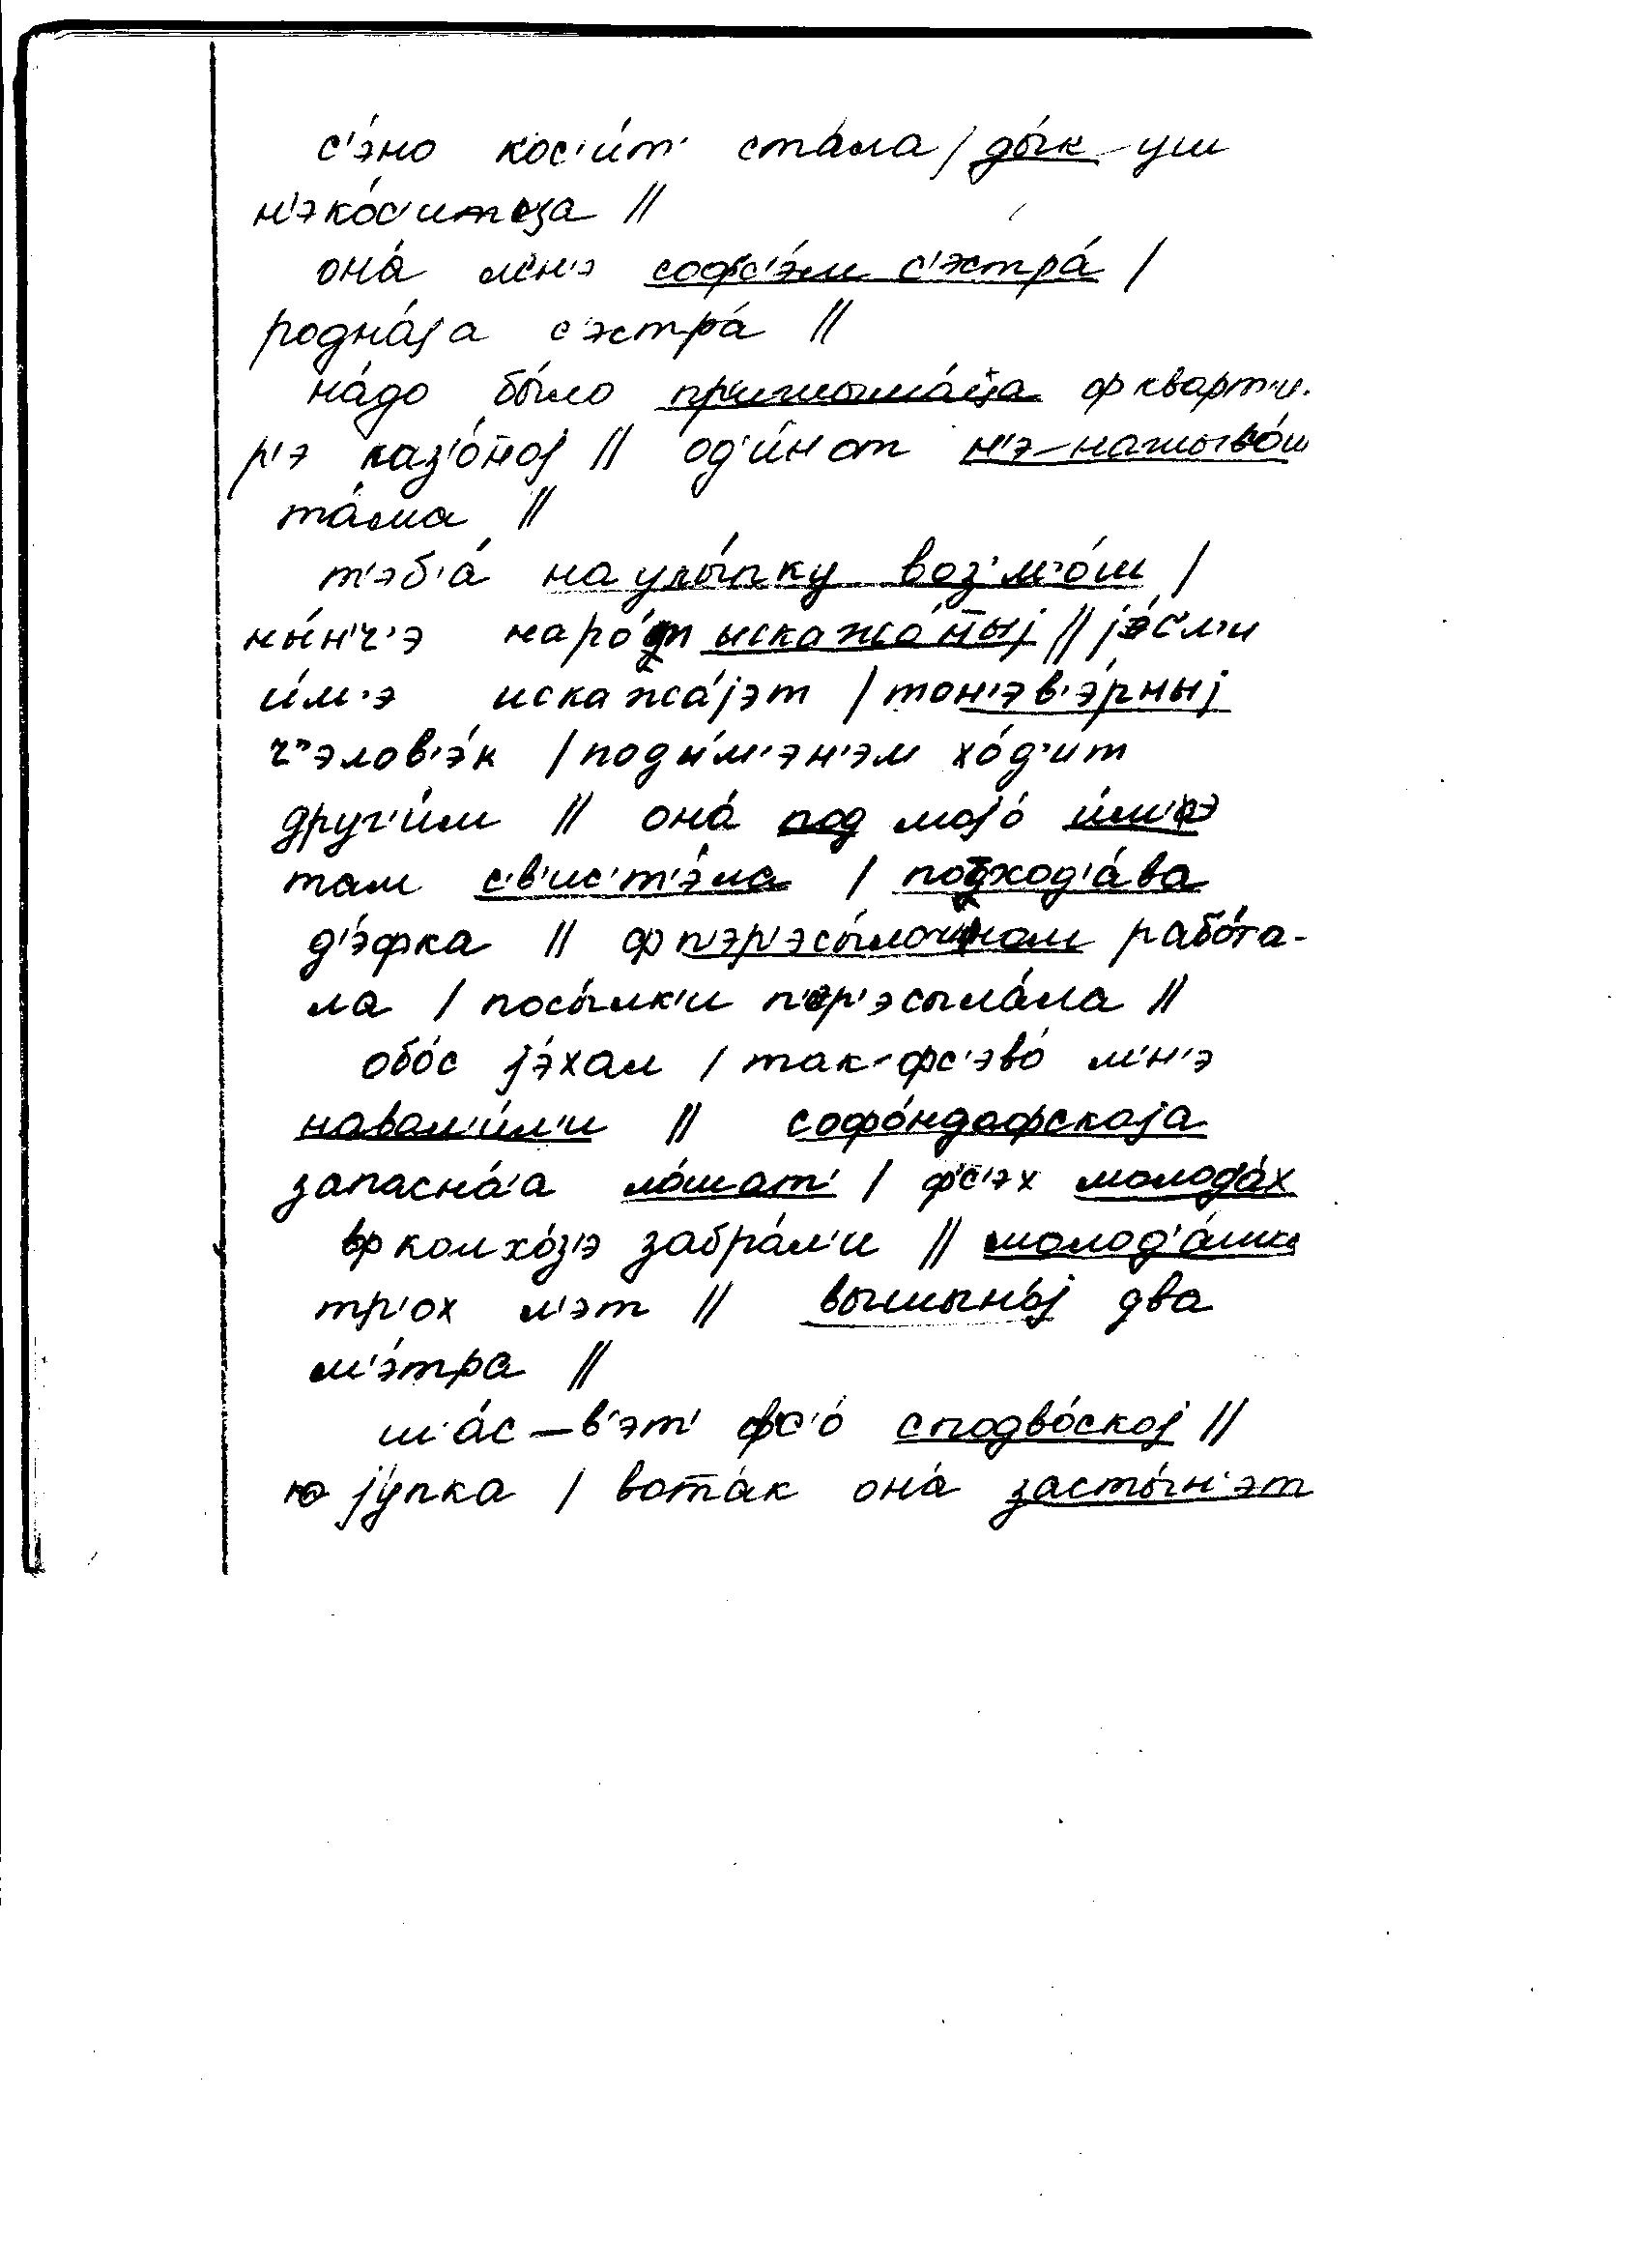 с'э́но кос'и́т' ста́ла / ды́к уш
н'эко́с'итца //
она́ мн'э софс'э́м с'эстра́ /
родна́jа с'эстра́ //
на́до бы́ло пр'ижыма́ца ф кварт'и́-
р'э каз'о́н̄оj // од'и́н от н'э-нажыво́ш
та́ма //
т'эб'а́ на улы́пку воз'м'о́ш /
ны́н'ч'э наро́т ыскажо́н̄ыj // jэ́с'л'и
и́м'э искажа́jэт / то н'эв'э́рныj
ч'элов'э́к / под ы́м'эн'эм хо́д'ит
друг'и́м // она́ под моjо́ и́м'э
там с'в'ис'т'э́ла / потход'а́ва
д'э́фка // ф п'эр'эсы́лочном рабо́та-
ла / посы́лк'и п'эр'эсыла́ла //
обо́с jэ́хал / так-фс'эво́ мн'э
навал'и́л'и // софо́ндофскаjа
запасна́'а ло́шат' / фс'эх молода́х
ф колхо́з'э забра́л'и // молод'а́шка
тр'ох л'эт // вышыно́j два
м'э́тра //
ш'а́с – в'эт' фс'о́ сподво́скоj //
jу́пка / вот̄а́к она́ засты́н'эт